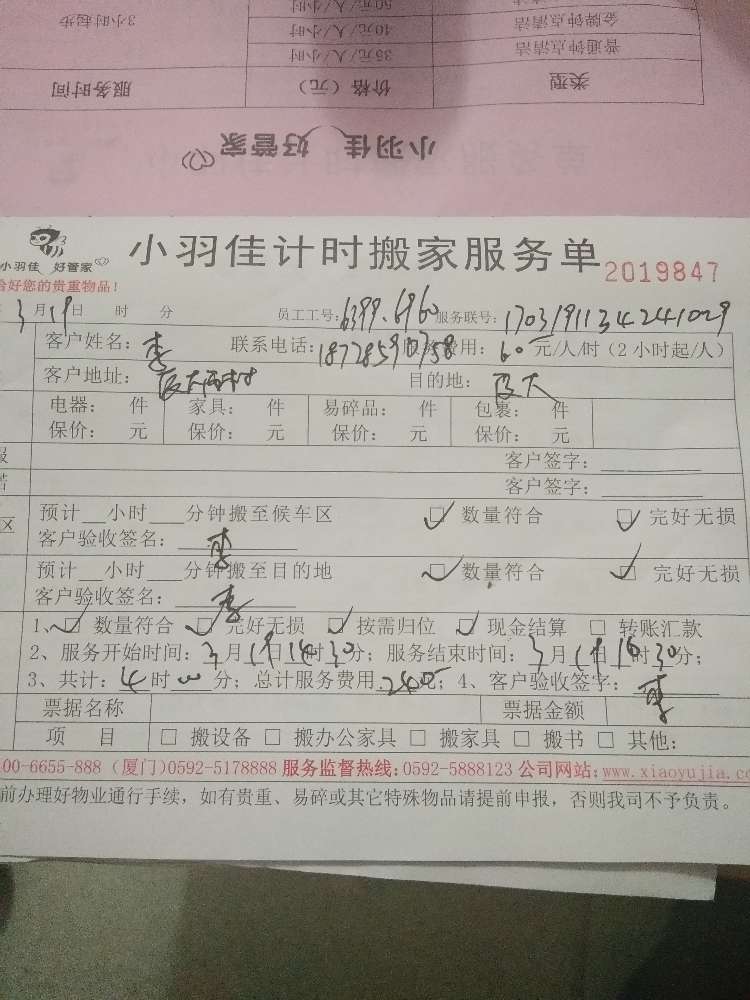 小羽佳 好管家
类型 价格（元） 服务时间
普通钟点清洁 35元/人/小时
金牌钟点清洁 40元/人/小时 3小时起步
50元/人/小时
小羽佳 好管家
小羽佳计时搬家服务单 2019847
好您的贵重物品！
3月19日 时 分 员工工号：6399.6960 服务联号：17031911342421029
客户姓名：李 联系电话：187728590758 费用：60元/人/时（2小时起/人）
客户地址：厦大西村 目的地：厦大
电器： 件 家具： 件 易碎品： 件 包裹： 件
保价： 元 保价： 元 保价： 元 保价： 元
客户签字：
客户签字：
预计__小时___分钟搬至候车区 ☑ 数量符合 ☑ 完好无损
区
客户验收签名：李
预计__小时___分钟搬至目的地 ☑ 数量符合 ☑ 完好无损
客户验收签名：李
1、☑ 数量符合 ☑ 完好无损 ☑ 按需归位 ☑ 现金结算 □ 转账汇款
2、服务开始时间：3月19日14时30分；服务结束时间：3月19日16时30分；
3、共计：4时00分；总计服务费用240元；4、客户验收签字：李
票据名称 票据金额
项 目 □ 搬设备 □ 搬办公家具 □ 搬家具 □ 搬书 □ 其他：
00-6655-888（厦门）0592-5178888 服务监督热线：0592-5888123 公司网站：www.xiaoyujia.co
前办理好物业通行手续，如有贵重、易碎或其它特殊物品请提前申报，否则我司不予负责。